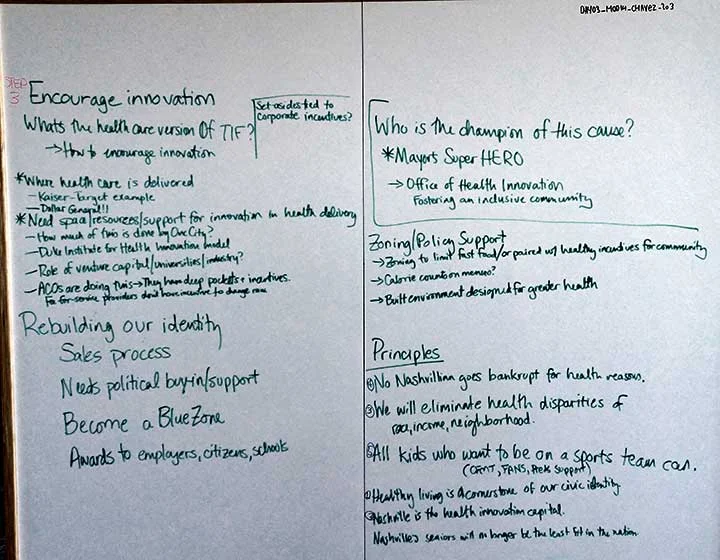 DV403_MOD14_CHAVEZ_203
STEP
3
Encourage innovation
Whats the health care version Of TIF?
Set asides tied to
corporate incentives?
→ How to encourage innovation
*Where health care is delivered
- Kaiser-Target example
- Dollar General!!
*Need space/resources/support for innovation in health delivery
- How much of this is done by One City?
- Duke Institute for Health Innovation model
- Role of venture capital/universities/industry?
- ACOs are doing this → They have deep pockets + incentives.
for-service providers don't have incentive to change
Rebuilding our identity
Sales process
Needs political buy-in/support
Become a Blue Zone
Awards to employers, citizens, schools
Who is the champion of this cause?
*Mayor's Super HERO
→ Office of Health Innovation
Fostering an inclusive community
Zoning/Policy Support
→ Zoning to limit fast food/or paired w/ healthy incentives for community
→ Calorie counts on menus?
→ Built environment designed for greater health
Principles
No Nashvillian goes bankrupt for health reasons.
We will eliminate health disparities of
race, income, neighborhood.
All kids who want to be on a sports team can.
FANS, support)
Healthy living is a cornerstone of our civic identity
Nashville is the health innovation capital.
Nashville's seniors will no longer be the least fit in the nation